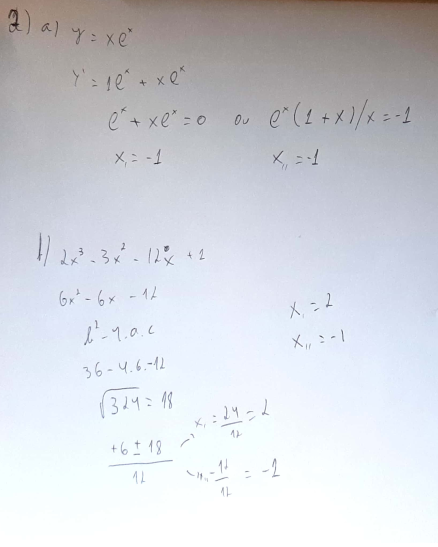 2) a) y = xeˣ
y' = 1eˣ + xeˣ
eˣ + xeˣ = 0 ou eˣ(1+x)/x = -1
x, = -1 x,, = -1
b) 2x³ - 3x² - 12x + 1
6x² - 6x - 12
b² - 4.a.c
36 - 4.6.-12
√324 = 18
+6 ± 18 / 12
x, = 24/12 = 2
x,, = -12/12 = -1
x, = 2
x,, = -1